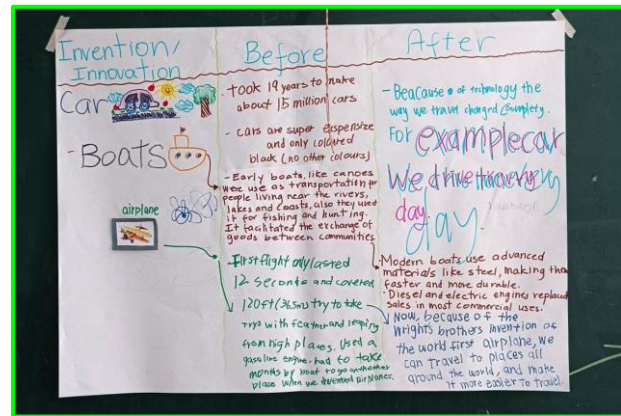 Invention/
Innovation
Before
After
Car
- took 19 years to make
about 15 million cars
- cars are super expensize
and only coloured
black (no other colours)
- Beacause of technology the
way we travel changed completly.
For example car
We drive every
day.
day.
- Boats
- Early boats, like canoes
were use as transportation for
people living near the rivers,
lakes and coasts, also they used
it for fishing and hunting.
It facilitated the exchange of
goods between communities
- Modern boats use advanced
materials like steel, making them
faster and more durable.
. Diesel and electric engines replaced
sales in most commercial uses.
airplane
- First flight only lasted
12 seconds and covered
120ft (36.5m) try to take
trys with feather and leaping
from high places. Used a
gasoline engine. had to take
months by boat to go another
place when we invented airplanes.
Now, because of the
Wrights brothers invention of
the world first airplane, we
can travel to places all
around the world, and make
it more easier to travel.